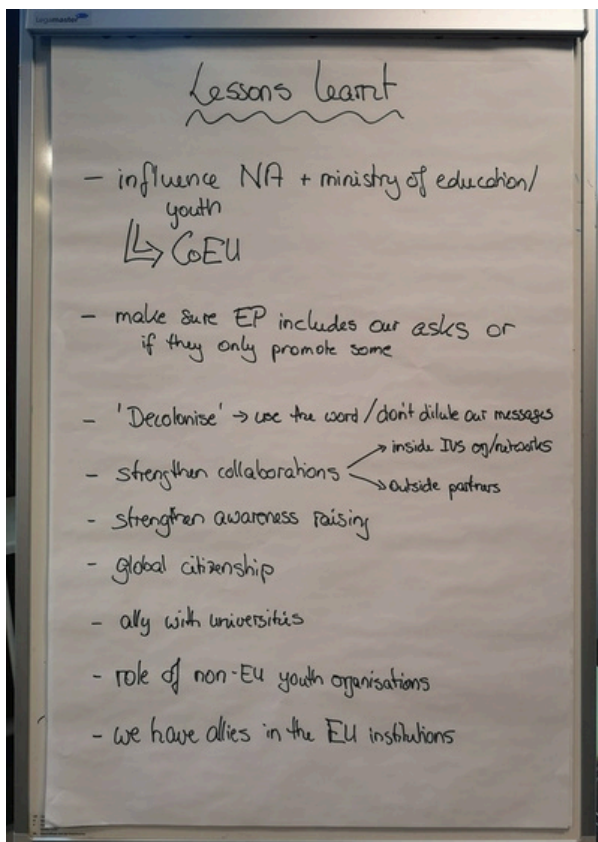 Legamaster
Lessons learnt
- influence NA + ministry of education/
youth
CoEU
- make sure EP includes our asks or
if they only promote some
- 'Decolonise' → use the word / don't dilute our messages
- strengthen collaborations → inside IVS org/networks
→ outside partners
- strengthen awareness raising
- global citizenship
- ally with universities
- role of non-EU youth organisations
- we have allies in the EU institutions